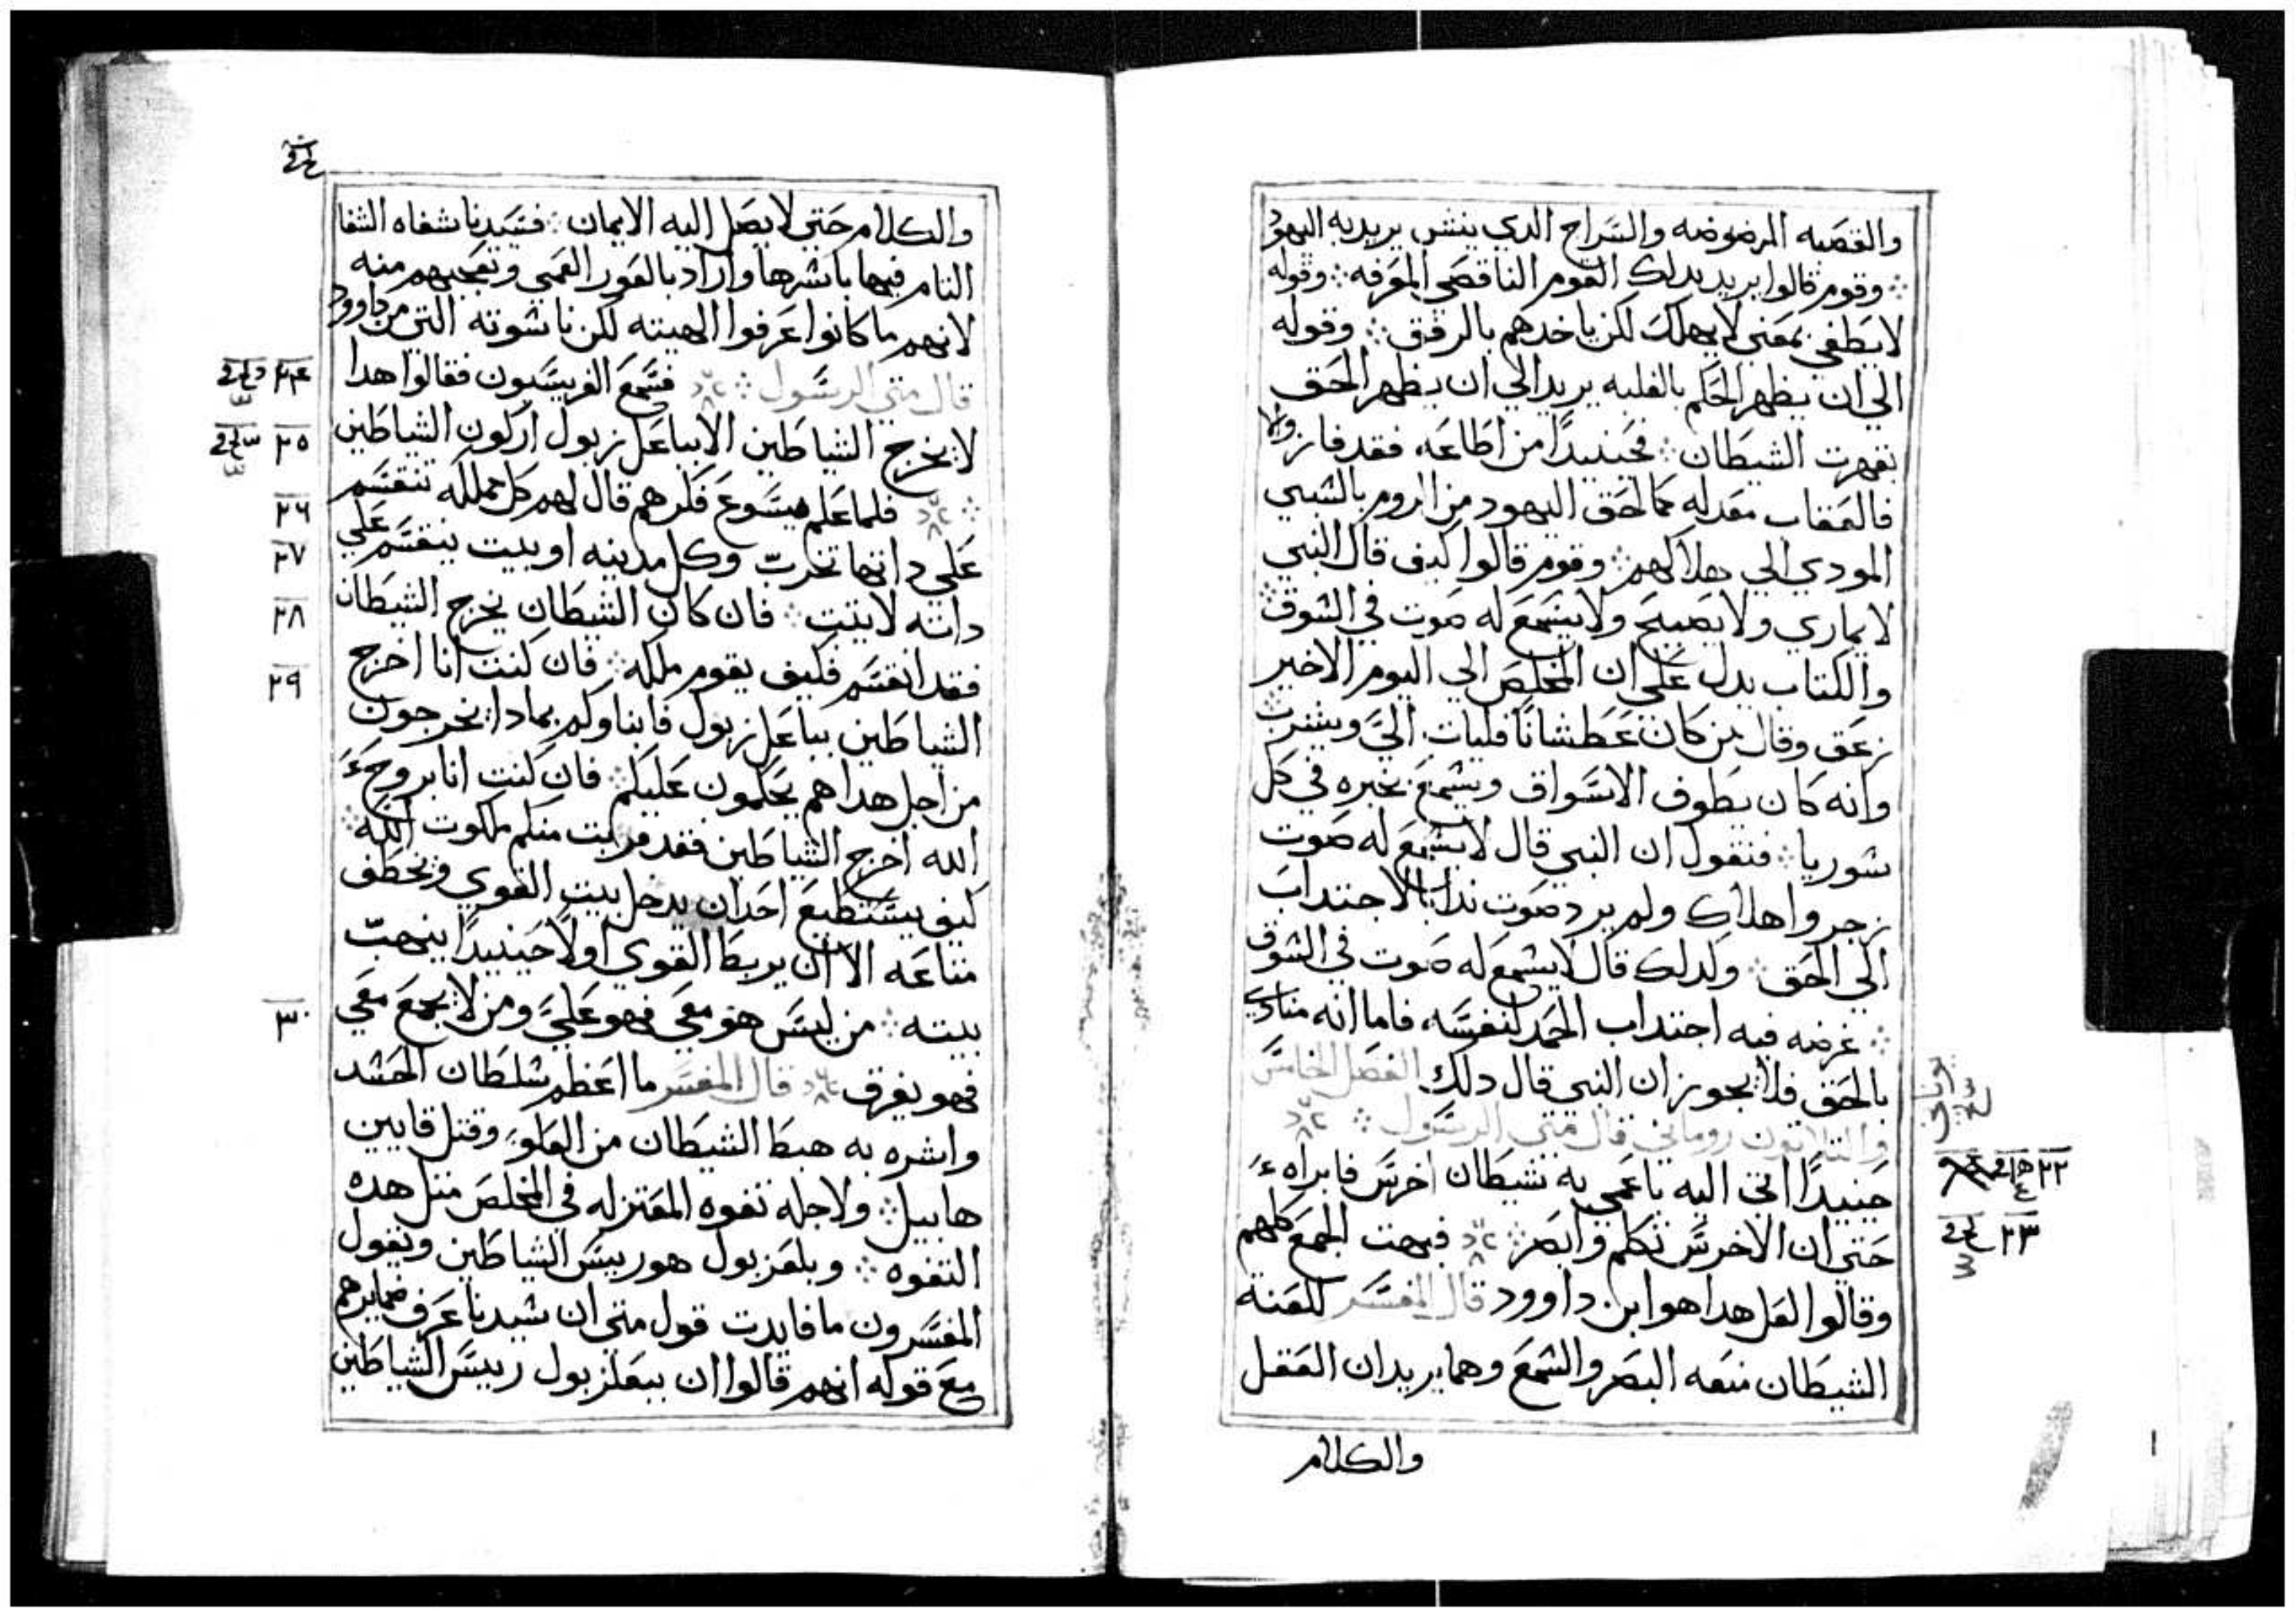 والقصبه المرضوضه والسراج الدي ينشر يريد به اليهود
وقوم قالوا يريد بدلك القوم الناقصي المعرفه وقوله
لا يطفي بمعني لا يهلك لكن ياخدهم بالرفق وقوله
الي ان يظهر الحكم بالغلبه يريد الي ان يظهر الحق
بقهرت الشيطان فحينيدًا من اطاعه فقد فاز والا
فالعقاب معد له كما لحق اليهود من الروم بالسبي
المودي الي هلاكهم وقوم قالوا كيف قال النبي
لا يماري ولا يصيح ولا يسمع له صوت في السوق
والكتاب يدل علي ان المخلص الي اليوم الاخير
زعق وقال من كان عطشانًا فليات الي ويشرب
وانه كان يطوف الاسواق ويسمع بخبره في كل
سوريا فنقول ان النبي قال لا يسمع له صوت
زجر واهلاك ولم يرد صوت ندا بالاجتداب
الي الحق ولدلك قال لا يسمع له صوت في السوق
غرضه فيه اجتداب الحمد لنفسه فاما انه منادي
بالحق فلا يجوز ان النبي قال دلك الفصل الخامس
والتلاتون روماني قال متي الرسول
حينيدًا اتي اليه باعمي به شيطان اخرس فابراه
حتي ان الاخرس تكلم وابصر فبهت الجمع كلهم
وقالوا لعل هدا هو ابن داوود قال المفسر للعنة
الشيطان منعه البصر والسمع وهما يريدان العقل
والكلام
يوناني
٢٢
٢٣
والكلام حتي لا يصل اليه الايمان فسيدنا شفاه الشفا
التام فيها باسرها واراد بالعور العمي وتعجبهم منه
لانهم ما كانوا عرفوا الهيته لكن ناسوته التي من داوود
قال متي الرسول فسمع الفريسيون فقالوا هدا
لا يخرج الشياطين الا بباعل زبول اركون الشياطين
فلما علم يسوع فكرهم قال لهم كل مملكه تنقسم
علي داتها تخرب وكل مدينه او بيت ينقسم علي
داته لا يتبت فان كان الشيطان يخرج الشيطان
فقد انقسم فكيف يقوم ملكه فان كنت انا اخرج
الشياطين بباعل زبول فابناوكم بمادا يخرجون
من اجل هدا هم يحكمون عليكم فان كنت انا بروح
الله اخرج الشياطين فقد قربت منكم ملكوت الله
كيف يستطيع احد ان يدخل بيت القوي ويخطف
متاعه الا ان يربط القوي اولًا حينيدًا ينهب
بيته من ليس هو معي فهو علي ومن لا يجمع معي
فهو يفرق قال المفسر ما اعظم سلطان الحسد
واشره به هبط الشيطان من العلو وقتل قايين
هابيل ولاجله تفوه المعتزله في المخلص متل هده
التفوه وبلعزبول هو رييس الشياطين ويقول
المفسرون ما فايدت قول متي ان سيدنا عرف ضمايرهم
مع قوله انهم قالوا ان ببعلزبول رييس الشياطين
٢٤
٢٥
٢٦
٢٧
٢٨
٢٩
٣٠